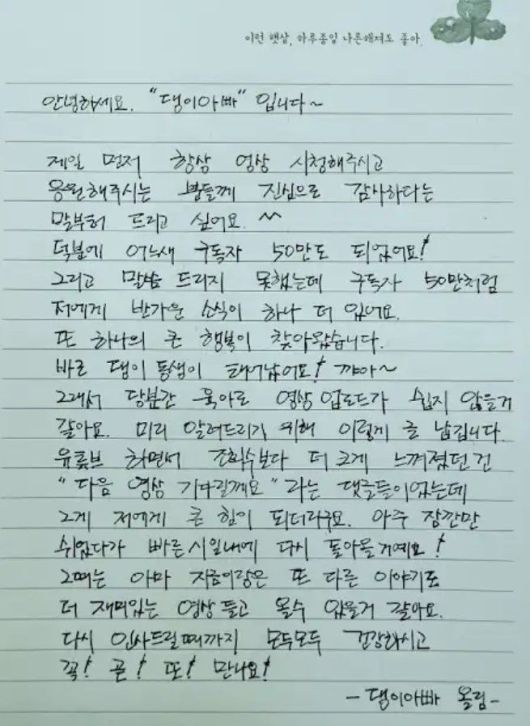 이런 햇살, 하루종일 나른해져도 좋아.
안녕하세요. "댕이아빠" 입니다~
제일 먼저 항상 영상 시청해주시고
응원해주시는 분들께 진심으로 감사하다는
말부터 드리고 싶어요. ^^
덕분에 어느새 구독자 50만도 되었어요!
그리고 말씀 드리지 못했는데 구독자 50만처럼
저에게 반가운 소식이 하나 더 있어요.
또 하나의 큰 행복이 찾아왔습니다.
바로 댕이 동생이 태어났어요! 꺄아~
그래서 당분간 육아로 영상 업로드가 쉽지 않을거
같아요. 미리 알려드리기 위해 이렇게 글 남깁니다.
유튜브 하면서 조회수보다 더 크게 느껴졌던 건
"다음 영상 기다릴께요" 라는 댓글들이었는데
그게 저에게 큰 힘이 되더라구요. 아주 잠깐만
쉬었다가 빠른시일내에 다시 돌아올거예요!
그때는 아마 지금이랑은 또 다른 이야기로
더 재미있는 영상 들고 올수 있을거 같아요.
다시 인사드릴때까지 모두모두 건강하시고
꼭! 곧! 또! 만나요!
- 댕이아빠 올림 -